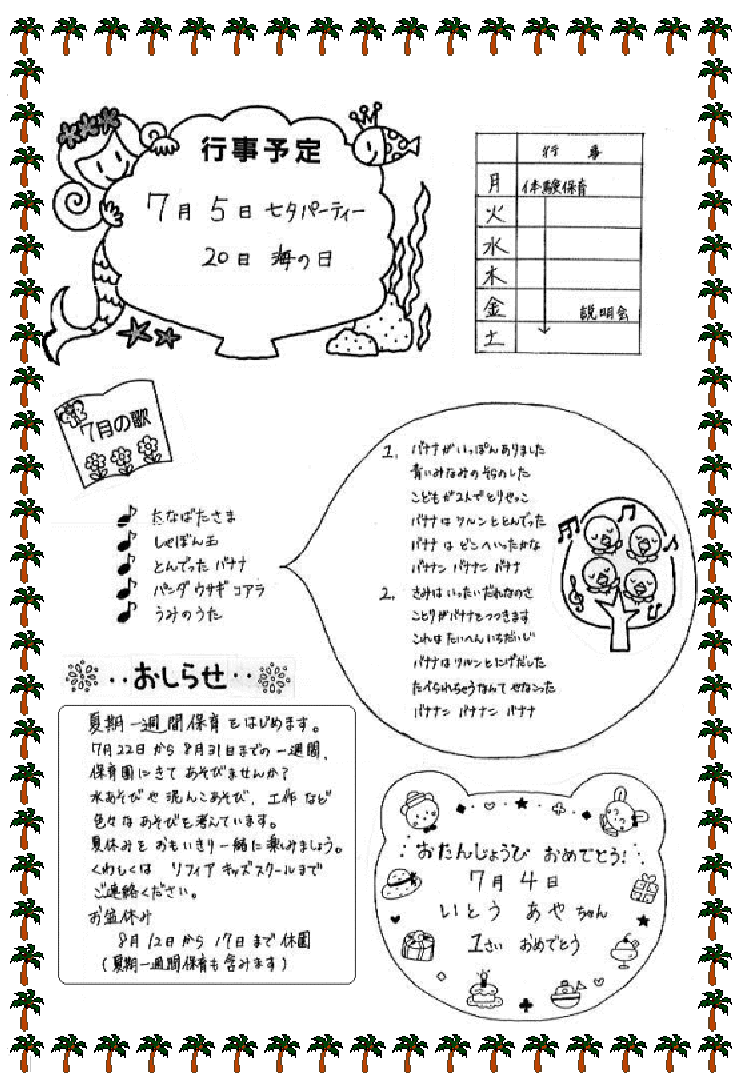 行事予定
7月 5日 七夕パーティー
20日 海の日
行 事
月 体験保育
火
水
木
金 説明会
土
7月の歌
たなばたさま
しゃぼん玉
とんでったバナナ
パンダ ウサギ コアラ
うみのうた
1. バナナがいっぽんありました
青いみなみのそらのした
こどもが2人でとりやっこ
バナナはツルンととんでった
バナナはどこへいったかな
バナナン バナナン バナナ
2. きみはいったいだれなのさ
ことりがバナナをつつきます
これはたいへんいちだいじ
バナナはツルンとにげだした
たべられちゃうなんて せなこった
バナナン バナナン バナナ
‥おしらせ‥
夏期一週間保育をはじめます。
7月22日から8月31日までの一週間、
保育園にきてあそびませんか?
水あそびや泥んこあそび、工作など
色々なあそびを考えています。
夏休みをおもいきり一緒に楽しみましょう。
くわしくは リフィア キッズスクールまで
ご連絡ください。
お盆休み
8月12日から17日まで休園
(夏期一週間保育も含みます)
おたんじょうび おめでとう!
7月4日
いとう あやちゃん
1さい おめでとう